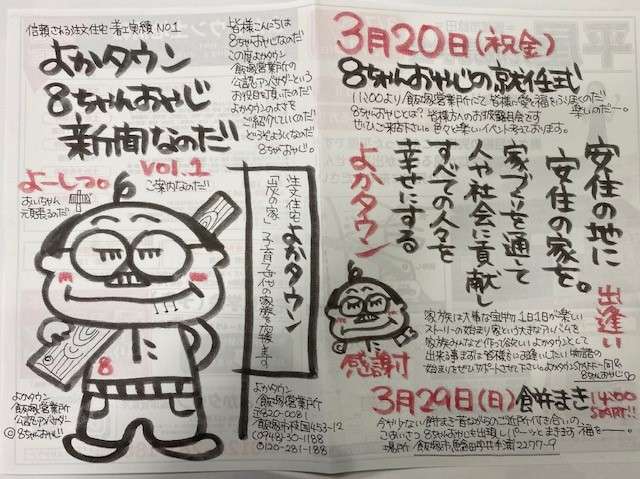 信頼される注文住宅 着工実績 NO.1
よかタウン
8ちゃんおやじ
新聞なのだ
vol.1
よーしっ。
ご案内なのだ!
おいちゃん
元気張るのだ
皆様こんにちは
8ちゃんおやじなのだ
この度よかタウン
飯塚営業所の
公認アンバサダーという
お役目を頂いたのだ
よかタウンのよさを
ご紹介していくのだ
どうぞよろしくなのだ
8ちゃんおやじ。
注文住宅 よかタウン
「出逢の家」 子育て世代の家族を応援します
8
よかタウン
飯塚営業所
公認アンバサダー
©8ちゃんおやじ
よかタウン
飯塚営業所
〒820-0081
飯塚市枝国453-12
☎0948-30-1188
0120-281-188
3月20日(祝金)
8ちゃんおやじの就任式
11:00より/飯塚営業所にて 皆様に愛と福をふりまくのだ
8ちゃんおやじとは? 皆様方への お披露目会です 楽しいのだー。
ぜひご来店下さい。色々と楽しいイベント考えております。
安住の地に
安住の家を。
家づくりを通して
人や社会に貢献し
すべての人々を
幸せにする
よかタウン
出逢い
感謝
家族は大事な宝物 1日1日が楽しい
ストーリーの始まり 家という大きなアルバムを
家族みんなで作って欲しい よかタウンとして
出来る事まずは 皆様に出逢いしたい 物語の
始まりをぜひサポートさせて下さい。よかタウンSTAFF一同&
8ちゃんおやじ
3月29日(日) 餅まき 14:00 START!!
今や少ない餅まき 昔ながらのご近所付き合いの、
ごあいさつ 8ちゃんおやじも出現し パーッとまきます 福をー。
場所 飯塚市鹿毛馬